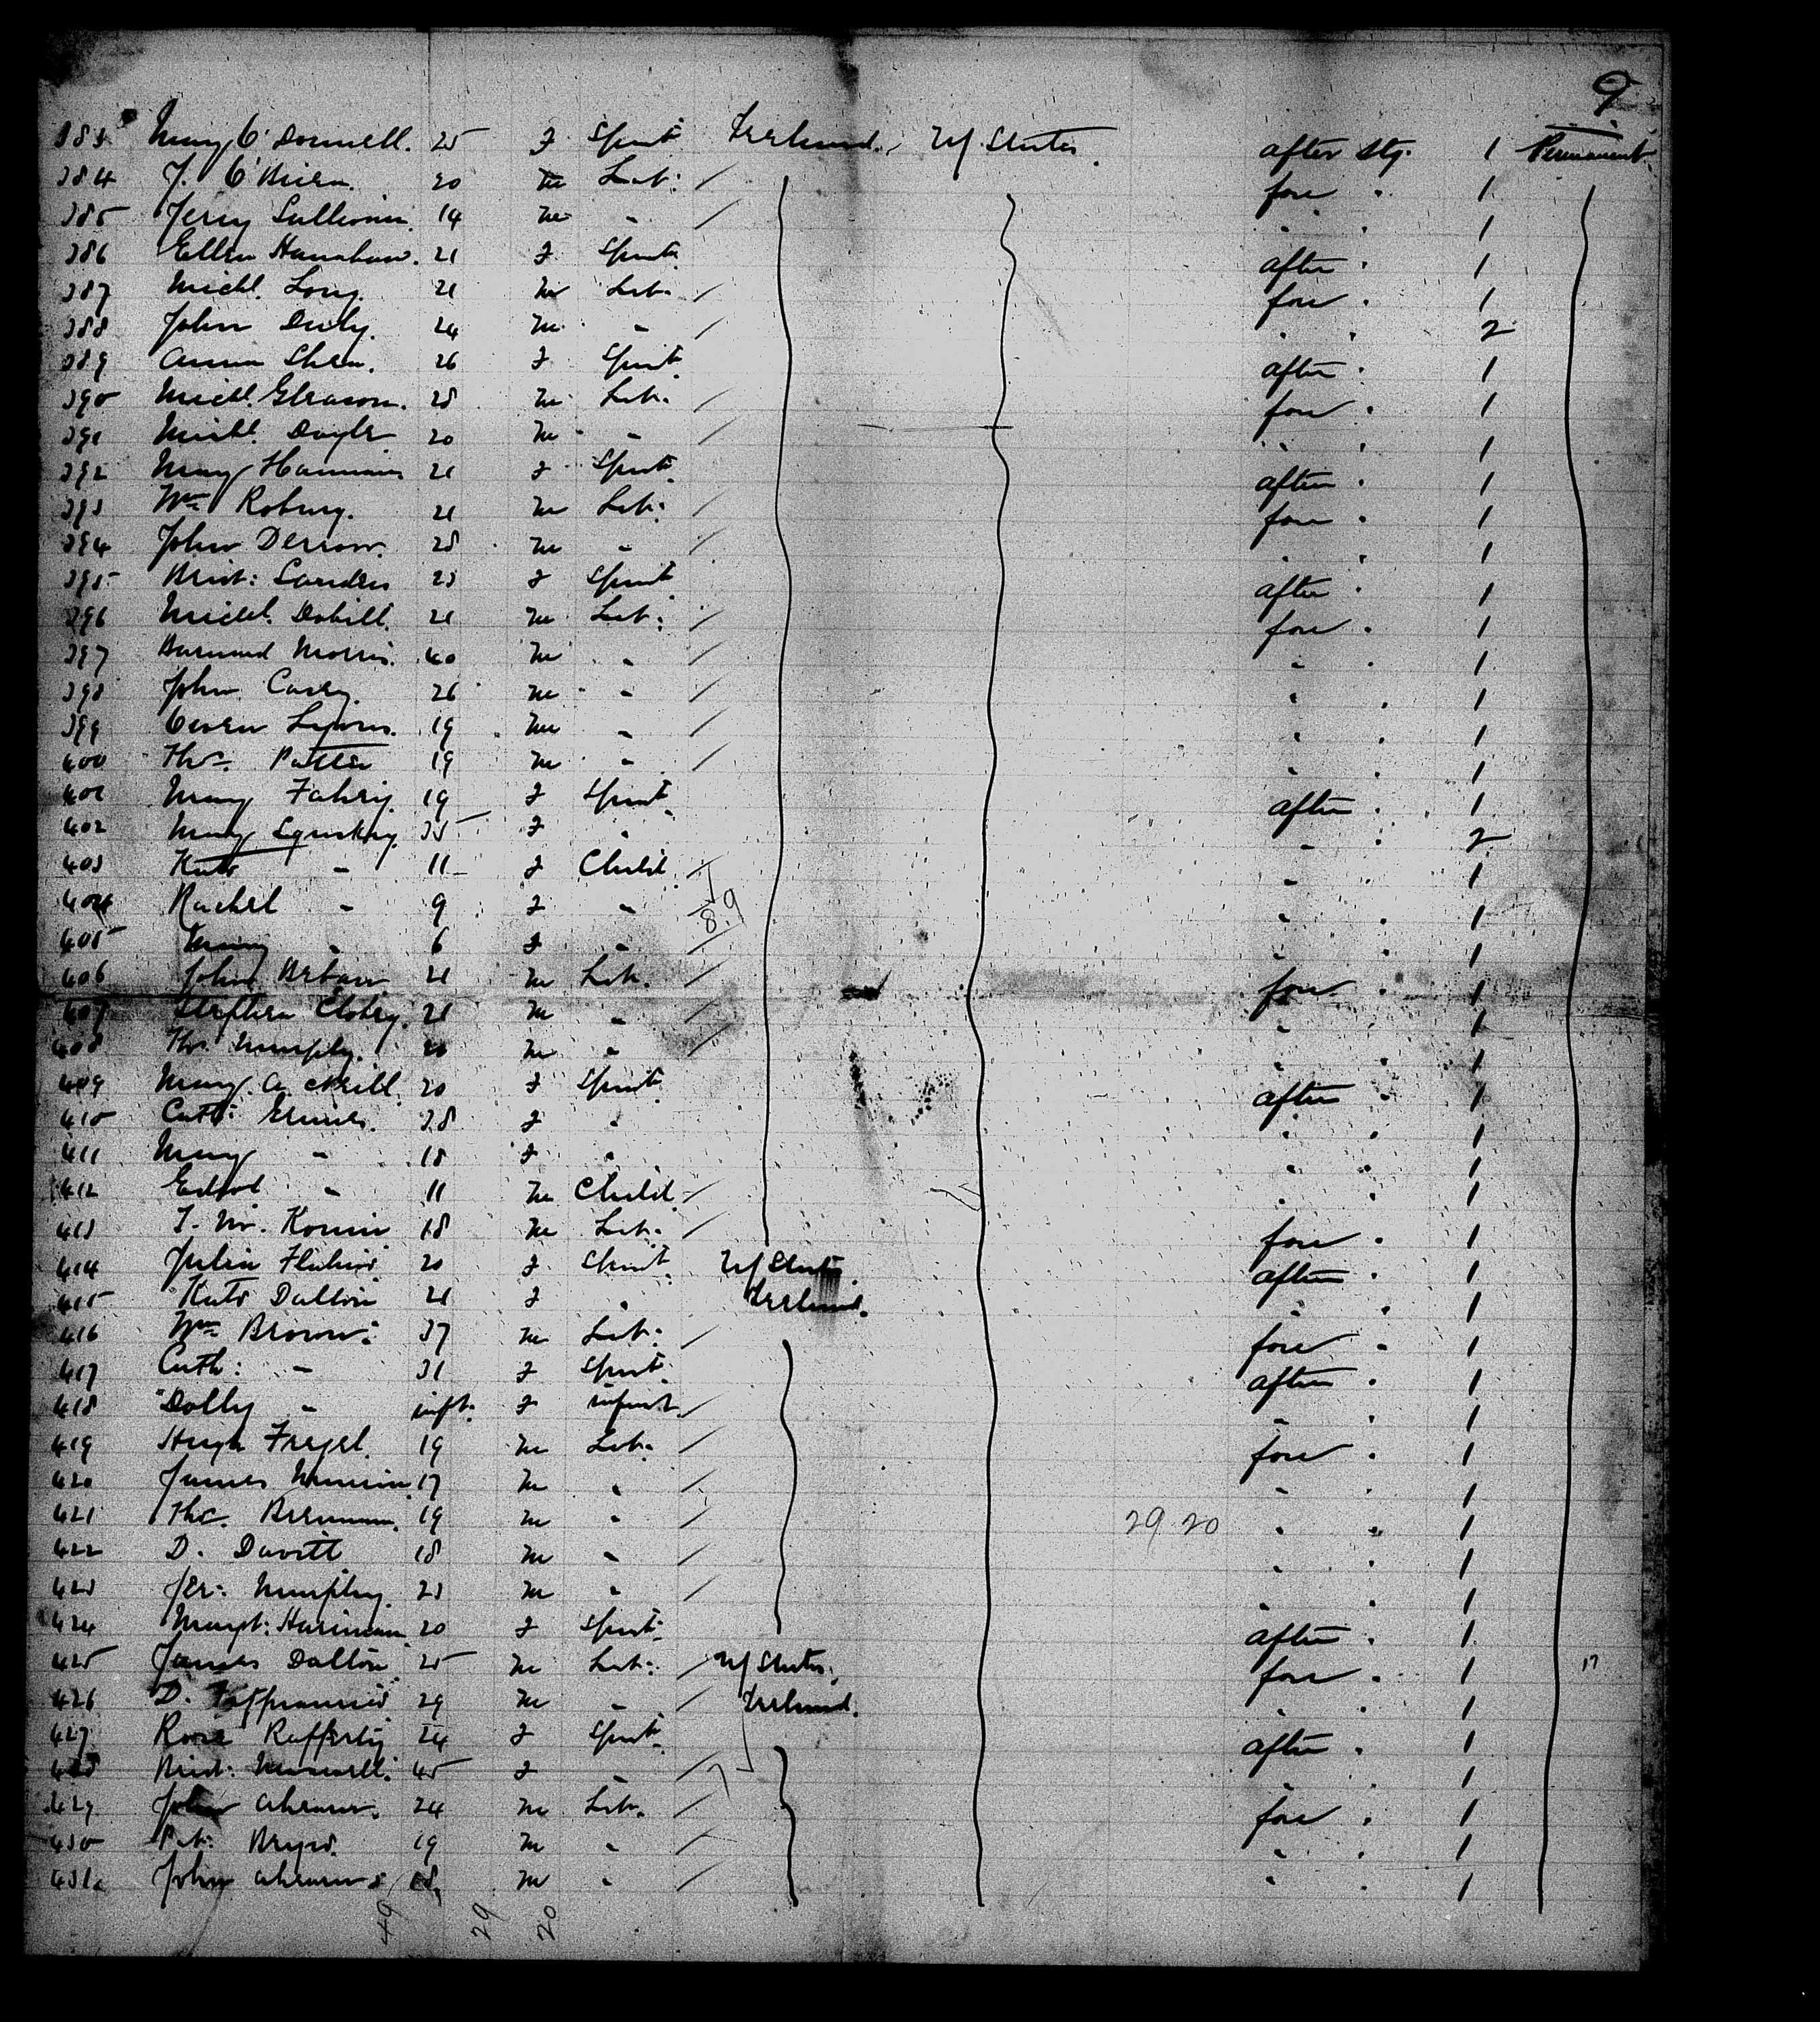 9
383 Mary O'Donnell. 25 F Spinst Ireland. U/States. after Stg. 1 Permanent
384 J. O'Brien. 20 M Lab: / fore " 1
385 Jerry Sullivan. 14 M " / " " 1
386 Ellen Hanahan. 21 F Spinst after " 1
387 Michl. Long. 21 M Lab. / fore " 1
388 John Daly. 24 M " / " " 2
389 Anna Shea. 26 F Spinst after " 1
390 Michl. Gleason. 28 M Lab. / fore " 1
391 Michl. Doyle 20 M " / " " 1
392 Mary Hannan 21 F Spinst after " 1
393 Wm Roburg. 21 M Lab: / fore " 1
394 John Derrow. 28 M " / " " 1
395 Brid: Sanders 23 F Spinst after " 1
396 Michl. Dohill. 21 M Lab: / fore " 1
397 Barnard Morris. 40 M " / " " 1
398 John Casey 26 M " / " " 1
399 Owen Lyons. 19 M " / " " 1
400 Thos. Patter 19 M " / " " 1
401 Mary Fahey. 19 F Spinst after " 1
402 Mary 35 F " " " 2
403 Kate " 11 F Child / " " 1
404 Rachel " 9 F " 8.9 " " 1
405 " 6 F " / " " 1
406 John 21 M Lab. / fore " 1
407 Stephen 21 M " / " " 1
408 Thos. Murphy. 20 M " / " " 1
409 Mary A. Neill. 20 F Spinst after " 1
410 Cath: 38 F " " " 1
411 Mary " 18 F " " " 1
412 Edwd " 11 M Child / " " 1
413 18 M Lab. / fore " 1
414 Julia 20 F Spinst U/States after " 1
415 Kate Dalton 21 F " Ireland. " " 1
416 Wm Brown: 37 M Lab: / fore " 1
417 Cath: " 31 F Spinst after " 1
418 Dolly " inft. F infant / " " 1
419 Hugh Fregel. 19 M Lab. / fore " 1
420 James 17 M " / " " 1
421 Thos. Brennan. 19 M " / 29 20 " " 1
422 D. Davitt 18 M " / " " 1
423 Jer: Murphy. 23 M " / " " 1
424 Margt: 20 F Spinst after " 1
425 James Dalton 25 M Lab: / U/States. fore " 1 17
426 D. 29 M " / Ireland. " " 1
427 Rose Rafferty 24 F Spinst after " 1
428 Brid: 45 F " / " " 1
429 John Ahearn. 24 M Lab. / fore " 1
430 Pat: 19 M " / " " 1
431 John Ahearn 18 M " / " " 1
49 29 20